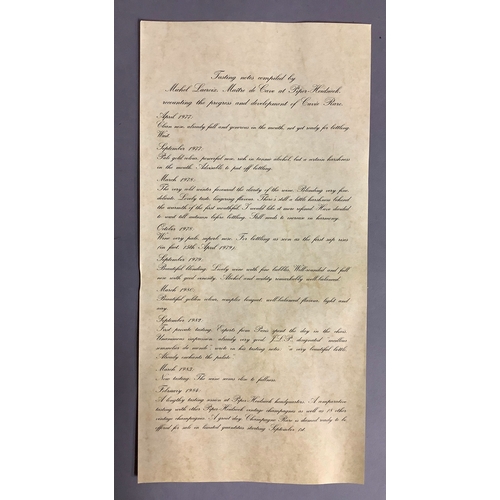 Tasting notes compiled by
Michel Lacroix, Maître de Cave at Piper-Heidsieck,
recounting the progress and development of Cuvée Rare.
April 1977:
Clean nose, already full and generous in the mouth, not yet ready for bottling.
Wait.
September 1977:
Pale gold colour, powerful nose, rich in tannic alcohol, but a certain harshness
in the mouth. Advisable to put off bottling.
March 1978:
The very cold winter favoured the clarity of the wine. Blending very fine,
delicate. Lively taste, lingering flavour. There's still a little harshness behind
the warmth of the first mouthful. I would like it more refined. Have decided
to wait till autumn before bottling. Still needs to increase in harmony.
October 1978:
Wine very pale, superb nose. For bottling as soon as the first sap rises
(in fact, 13th April 1979).
September 1979:
Beautiful blending. Lively wine with fine bubbles. Well-rounded and full
nose with good acidity. Alcohol and acidity remarkably well-balanced.
March 1980:
Beautiful golden colour, complex bouquet, well-balanced flavour, light and
easy.
September 1982:
First private tasting. Experts from Paris spent the day in the
Unanimous impression: already very good. J.L.P. designated "meilleur
sommelier du monde" wrote in his tasting notes: "a very beautiful bottle.
Already enchants the palate."
March 1983:
New tasting. The wine seems close to fullness.
February 1984:
A lengthy tasting session at Piper-Heidsieck headquarters. A comparative
tasting with other Piper-Heidsieck vintage champagnes as well as 18 other
vintage champagnes. A great day. Champagne Rare is deemed ready to be
offered for sale in limited quantities starting September 1st.